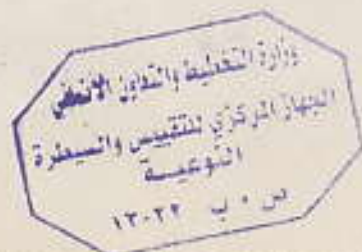 وزارة التخطيط والتعاون الانمائي
الجهاز المركزي للتقييس والسيطرة
النوعية
ص ٠ ب ١٣٠٣٢